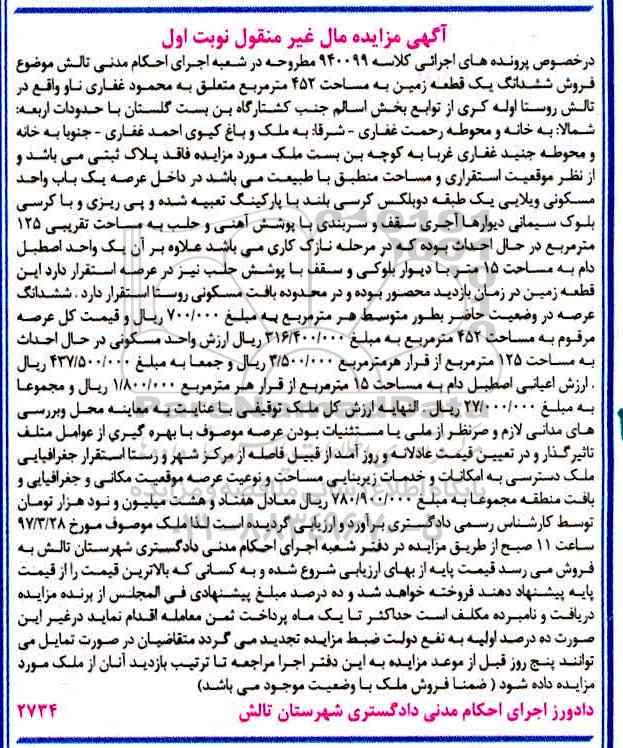 آگهی مزایده مال غیر منقول نوبت اول
درخصوص پرونده های اجرائی کلاسه ۹۴۰۰۹۹ مطروحه در شعبه اجرای احکام مدنی تالش موضوع
فروش ششدانگ یک قطعه زمین به مساحت ۴۵۲ مترمربع متعلق به محمود غفاری ناو واقع در
تالش روستا اوله کری از توابع بخش اسالم جنب کشتارگاه بن بست گلستان با حدودات اربعه:
شمالا: به خانه و محوطه رحمت غفاری - شرقا: به ملک و باغ کیوی احمد غفاری - جنوبا به خانه
و محوطه جنید غفاری غربا به کوچه بن بست ملک مورد مزایده فاقد پلاک ثبتی می باشد و
از نظر موقعیت استقراری و مساحت منطبق با طبیعت می باشد در داخل عرصه یک باب واحد
مسکونی ویلایی یک طبقه دوبلکس کرسی بلند با پارکینگ تعبیه شده و پی ریزی و با کرسی
بلوک سیمانی دیوارها آجری سقف و سربندی با پوشش آهنی و حلب به مساحت تقریبی ۱۲۵
مترمربع در حال احداث بوده که در مرحله نازک کاری می باشد علاوه بر آن یک واحد اصطبل
دام به مساحت ۱۵ متر با دیوار بلوکی و سقف با پوشش حلب نیز در عرصه استقرار دارد این
قطعه زمین در زمان بازدید محصور بوده و در محدوده بافت مسکونی روستا استقرار دارد . ششدانگ
عرصه در وضعیت حاضر بطور متوسط هر مترمربع به مبلغ ۷۰۰/۰۰۰ ریال و قیمت کل عرصه
مرقوم به مساحت ۴۵۲ مترمربع به مبلغ ۳۱۶/۴۰۰/۰۰۰ ریال ارزش واحد مسکونی در حال احداث
به مساحت ۱۲۵ مترمربع از قرار هرمترمربع ۳/۵۰۰/۰۰۰ ریال و جمعا به مبلغ ۴۳۷/۵۰۰/۰۰۰ ریال
. ارزش اعیانی اصطبل دام به مساحت ۱۵ مترمربع از قرار هر مترمربع ۱/۸۰۰/۰۰۰ ریال و مجموعا
به مبلغ ۲۷/۰۰۰/۰۰۰ ریال. النهایه ارزش کل ملک توقیفی با عنایت به معاینه محل وبررسی
های مدانی لازم و صرنظر از ملی یا مستثنیات بودن عرصه موصوف با بهره گیری از عوامل متلف
تاثیرگذار و در تعیین قیمت عادلانه و روز آمد از قبیل فاصله از مرکز شهر و رستا استقرار جغرافیایی
ملک دسترسی به امکانات و خدمات زیربنایی مساحت و نوعیت عرصه موقعیت مکانی و جغرافیایی و
بافت منطقه مجموعا به مبلغ ۷۸۰/۹۰۰/۰۰۰ ریال معادل هفتاد و هشت میلیون و نود هزار تومان
توسط کارشناس رسمی دادگستری برآورد و ارزیابی گردیده است لذا ملک موصوف مورخ ۹۷/۳/۲۸
ساعت ۱۱ صبح از طریق مزایده در دفتر شعبه اجرای احکام مدنی دادگستری شهرستان تالش به
فروش می رسد قیمت پایه از بهای ارزیابی شروع شده و به کسانی که بالاترین قیمت را از قیمت
پایه پیشنهاد دهند فروخته خواهد شد و ده درصد مبلغ پیشنهادی فی المجلس از برنده مزایده
دریافت و نامبرده مکلف است حداکثر تا یک ماه پرداخت ثمن معامله اقدام نماید درغیر این
صورت ده درصد اولیه به نفع دولت ضبط مزایده تجدید می گردد متقاضیان در صورت تمایل می
توانند پنج روز قبل از موعد مزایده به این دفتر اجرا مراجعه تا ترتیب بازدید آنان از ملک مورد
مزایده داده شود ( ضمنا فروش ملک با وضعیت موجود می باشد)
دادورز اجرای احکام مدنی دادگستری شهرستان تالش ۲۷۳۴